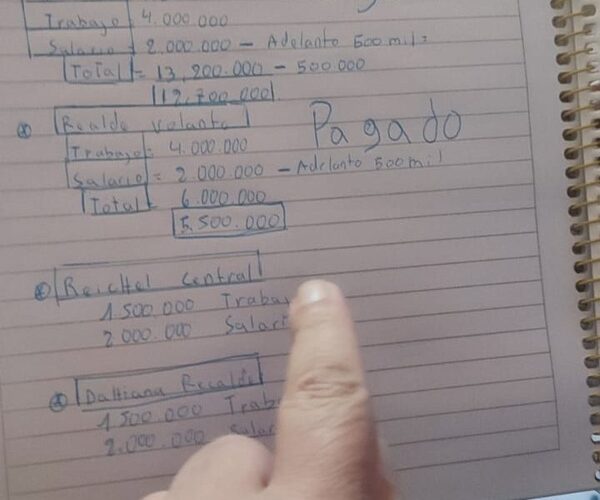 Trabajo 4.000.000
Salario = 2.000.000 - Adelanto 500 mil
Total = 13,200.000 - 500.000
12,700.000
Recalde Volante
Pagado
Trabajo = 4.000.000
Salario = 2.000.000 - Adelanto 500 mil
Total = 6.000.000
5.500.000
Reichel Central
1.500.000 Traba
2.000.000 Salari
Dahiana Recalde
1.500.000 Trab
2.000.000 Salar